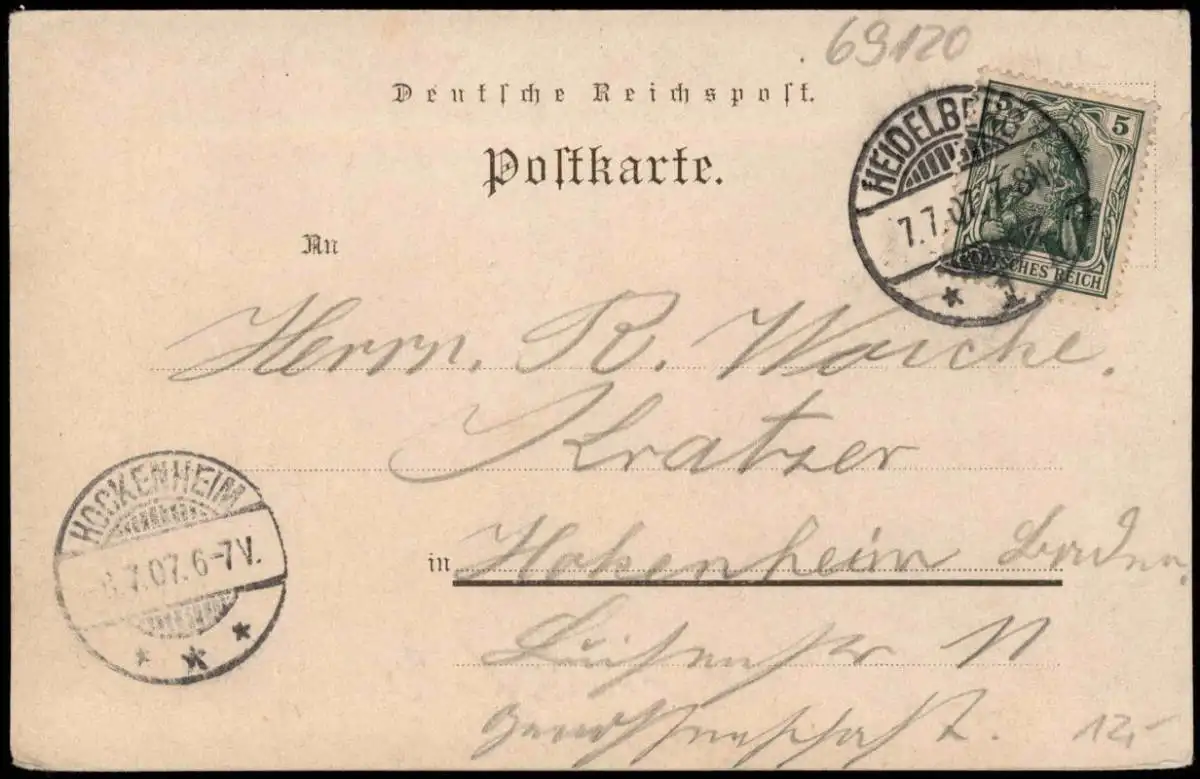 69120
Deutsche Reichspost.
Postkarte.
HEIDELBE
7.7.07.7-8N
1
5 5
DEUTSCHES REICH
An
Herrn. R. Woiche.
Kratzer
in Hokenheim Baden.
Luisenstr 11
Genossenschaft.
HOCKENHEIM
8.7.07.6-7V.
12,-